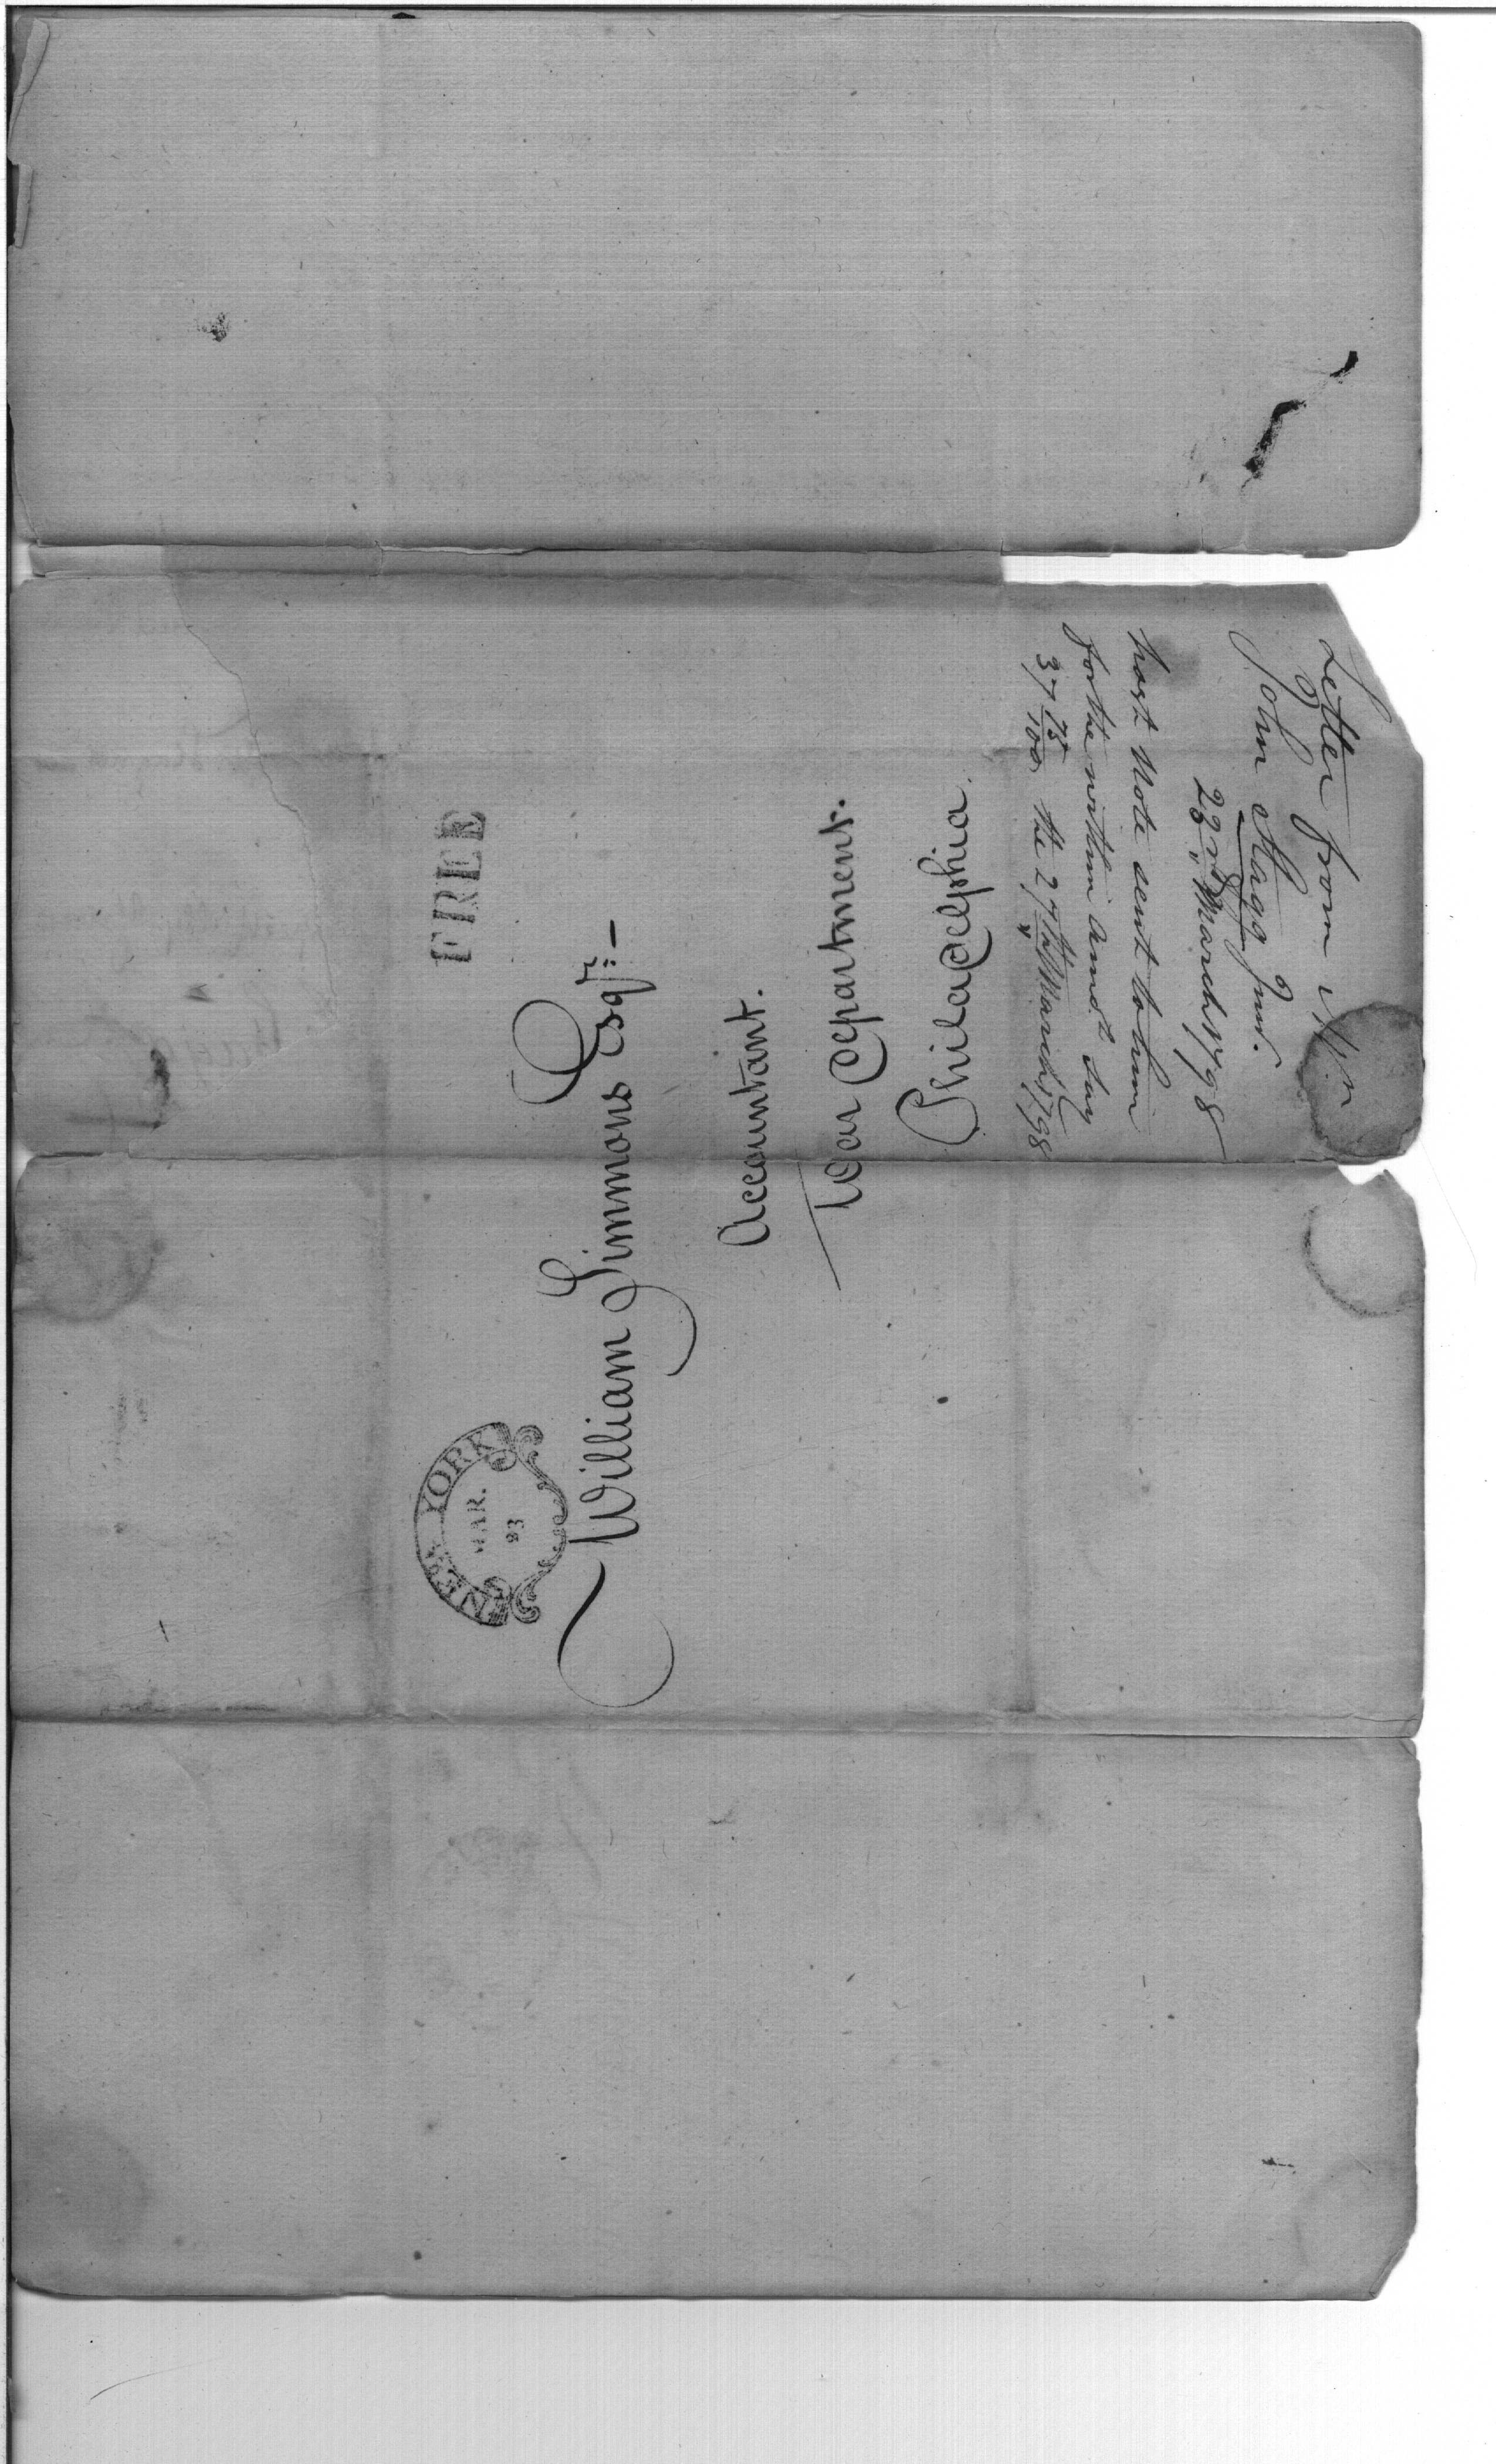 FREE
NEW YORK
MAR.
23
William Simmons Esqr.:—
Accountant.
War Department.
Philadelphia.
Letter from Mr
John Stagg Junr.
22nd March 1798
post Note sent to him
for the within amot. say
37 75/100 the 27th March 1798